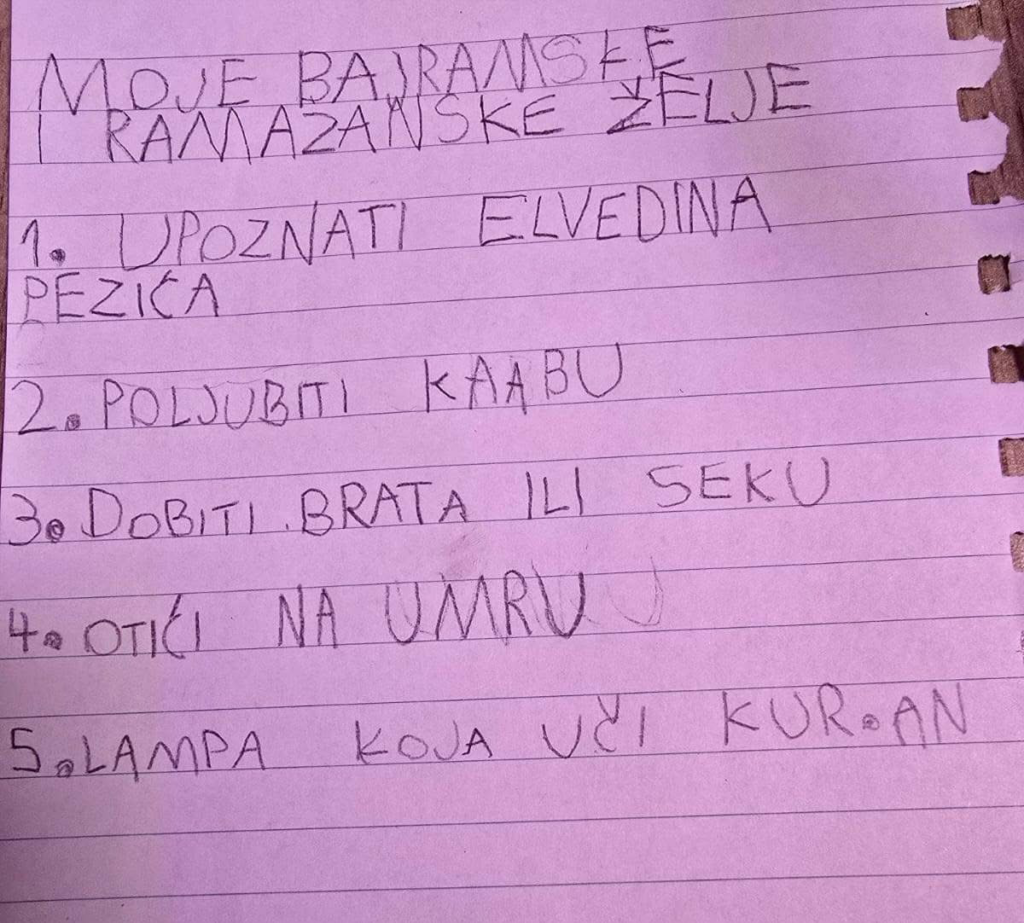 MOJE BAJRAMSKE
I RAMAZANSKE ŽELJE
1. UPOZNATI ELVEDINA
PEZIĆA
2. POLJUBITI KAABU
3. DOBITI BRATA ILI SEKU
4. OTIĆI NA UMRU
5. LAMPA KOJA UČI KUR.AN